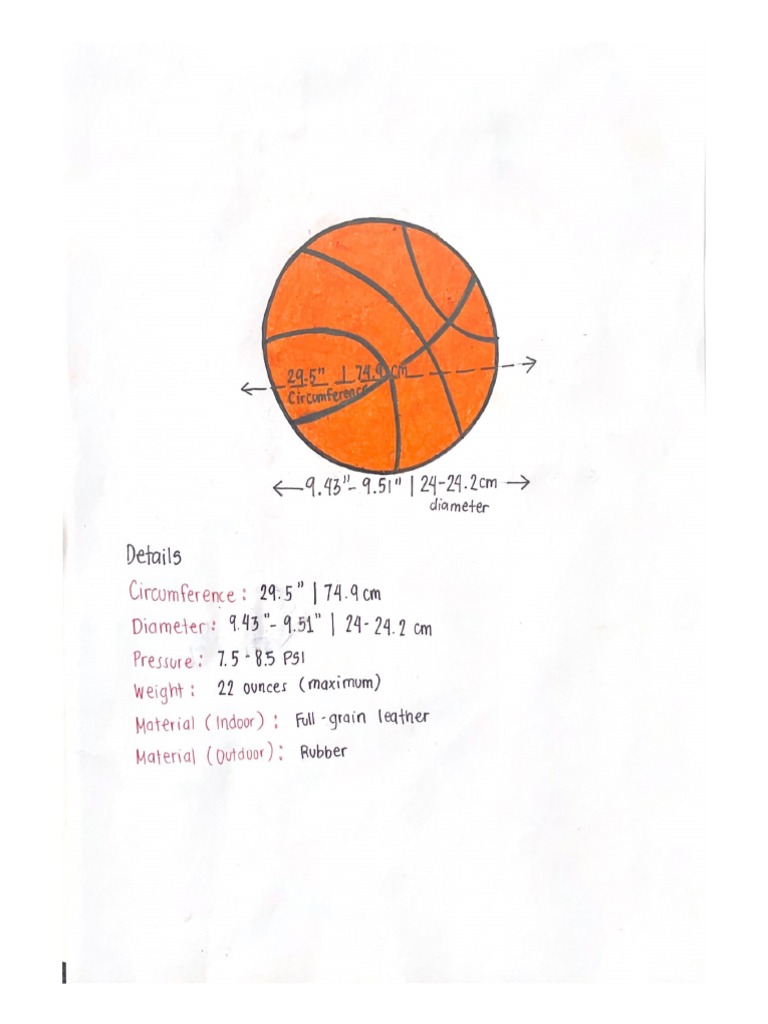 29.5" | 74.9 cm
Circumference
9.43"- 9.51" | 24-24.2cm
diameter
Details
Circumference: 29.5" | 74.9 cm
Diameter: 9.43"- 9.51" | 24-24.2 cm
Pressure: 7.5-8.5 PSI
Weight: 22 ounces (maximum)
Material (Indoor): Full-grain leather
Material (Outdoor): Rubber